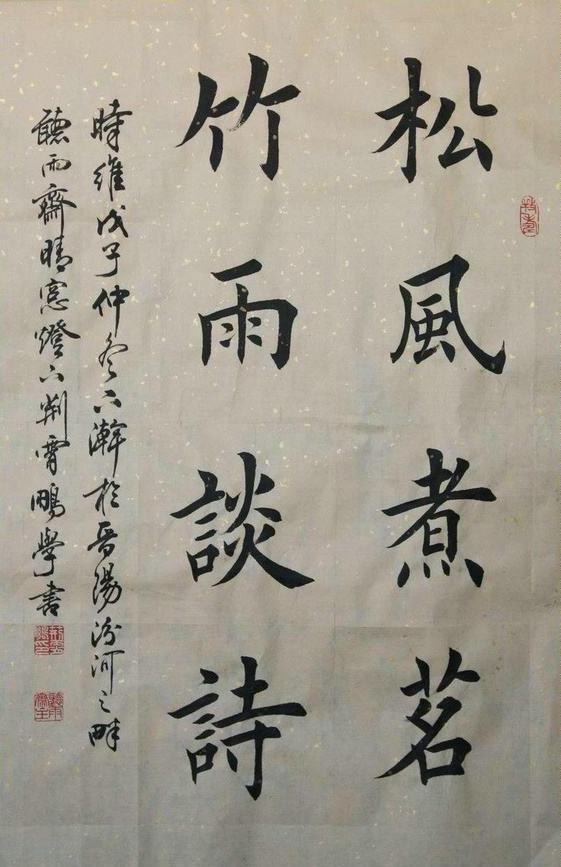 松風煮茗
竹雨談詩
時維戊子仲冬下澣於晉陽汾河之畔
聽雨齋晴窓燈下荆霄鵬學書